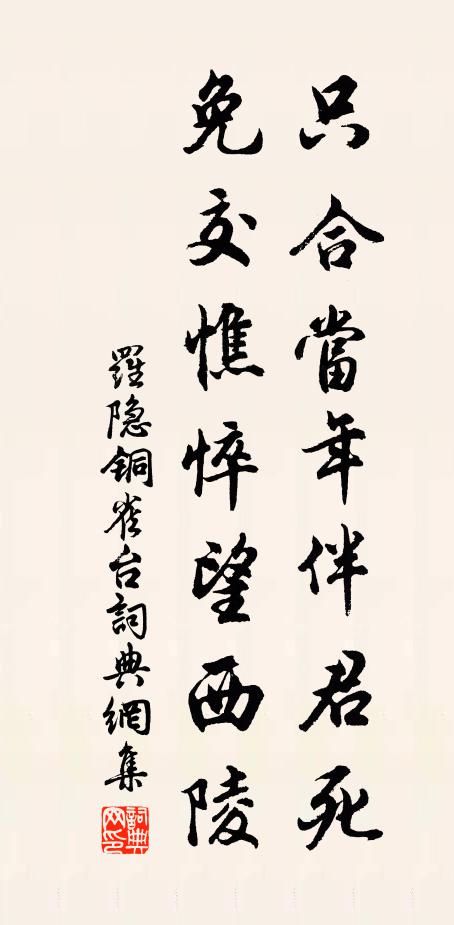 只合當年伴君死
免交憔悴望西陵
羅隐銅雀台詞典網集
詞典网印